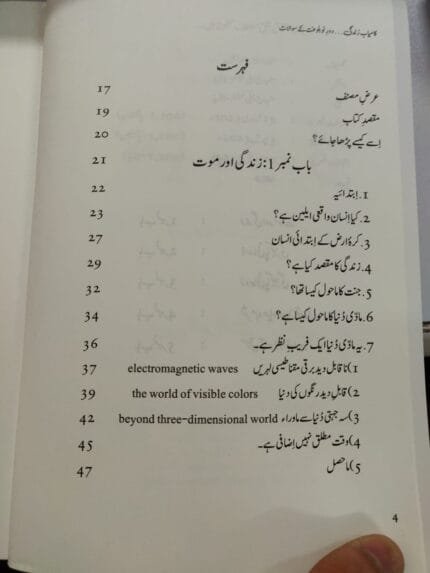 کامیاب زندگی... دورِ نوبلوغت کے سوالات
فہرست
عرضِ مصنف 17
مقصدِ کتاب 19
اِسے کیسے پڑھا جائے؟ 20
باب نمبر 1: زندگی اور موت 21
1. اِبتدائیہ 22
2. کیا اِنسان واقعی ایلین ہے؟ 23
3. کرہ ارض کے اِبتدائی انسان 27
4. زندگی کا مقصد کیا ہے؟ 29
5. جنت کا ماحول کیسا تھا؟ 32
6. مادّی دُنیا کا ماحول کیسا ہے؟ 34
7. یہ مادّی دُنیا ایک فریبِ نظر ہے۔ 36
1) ناقابلِ دید برقی مقناطیسی لہریں electromagnetic waves 37
2) قابلِ دید رنگوں کی دنیا the world of visible colors 39
3) سہ جہتی دُنیا سے ماوراء beyond three-dimensional world 42
4) وقت مطلق نہیں اِضافی ہے۔ 45
5) ماحصل 47
4